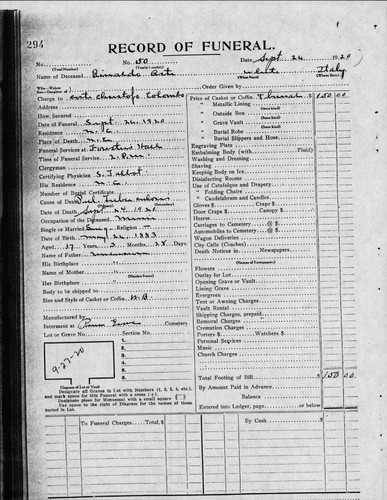 294
RECORD OF FUNERAL.
No. 150 Date Sept 24 1920
(Total Number) (Yearly Number)
Name of Deceased Rinaldo White Italy
(What Race) (Where Born)
Charge to Order Given by
Address
How Secured
Date of Funeral Sept. 26. 1920
Residence
Place of Death
Funeral Services at
Time of Funeral Service 2. P.m.
Clergyman
Certifying Physician S. Talbot
His Residence
Number of Burial Certificate
Cause of Death
Date of Death Sept 24 1920
Occupation of the Deceased Miner
Single or Married Sing Religion
Date of Birth May 26. 1883
Aged 37 Years, 3 Months, 28 Days
Name of Father unknown
His Birthplace
Name of Mother
(Maiden Name)
Her Birthplace
Body to be shipped to
Size and Style of Casket or Coffin
Manufactured by
Interment at Cemetery
Lot or Grave No. Section No.
1
2
3
4
5
6
7
8
9-27-20
Diagram of Lot or Vault
Designate all Graves in Lot with Numbers (1, 2, 3, 4, etc.), and mark space for this Funeral with a cross (+).
Designate place for Monument with a small square (□)
Use space to the right of Diagram for the names of those buried in Lot.
Price of Casket or Coffin Funeral $ 150 00
" Metallic Lining
" Outside Box
" Grave Vault
" Burial Robe
" Burial Slippers and Hose
Engraving Plate
Embalming Body (with Fluid)
Washing and Dressing
Shaving
Keeping Body on Ice
Disinfecting Rooms
Use of Catafalque and Drapery
" Folding Chairs
" Candelabrum and Candles
Gloves $ Crape $
Door Crape $ Canopy $
Hearse
Carriages to Cemetery @ $
Automobiles to Cemetery @ $
Wagon Deliveries
City Calls (Coaches)
Death Notices in Newspapers
(Names of Newspapers)
Flowers
Outlay for Lot
Opening Grave or Vault
Lining Grave
Evergreen
Tent or Awning Charges
Vault Rental
Shipping Charges, prepaid
Removal Charges
Cremation Charges
Porters $ Watchers $
Personal Services
Music
Church Charges
Total Footing of Bill $ 150 00
By Amount Paid in Advance
Balance
Entered into Ledger, page or below
To Funeral Charges $ By Cash $